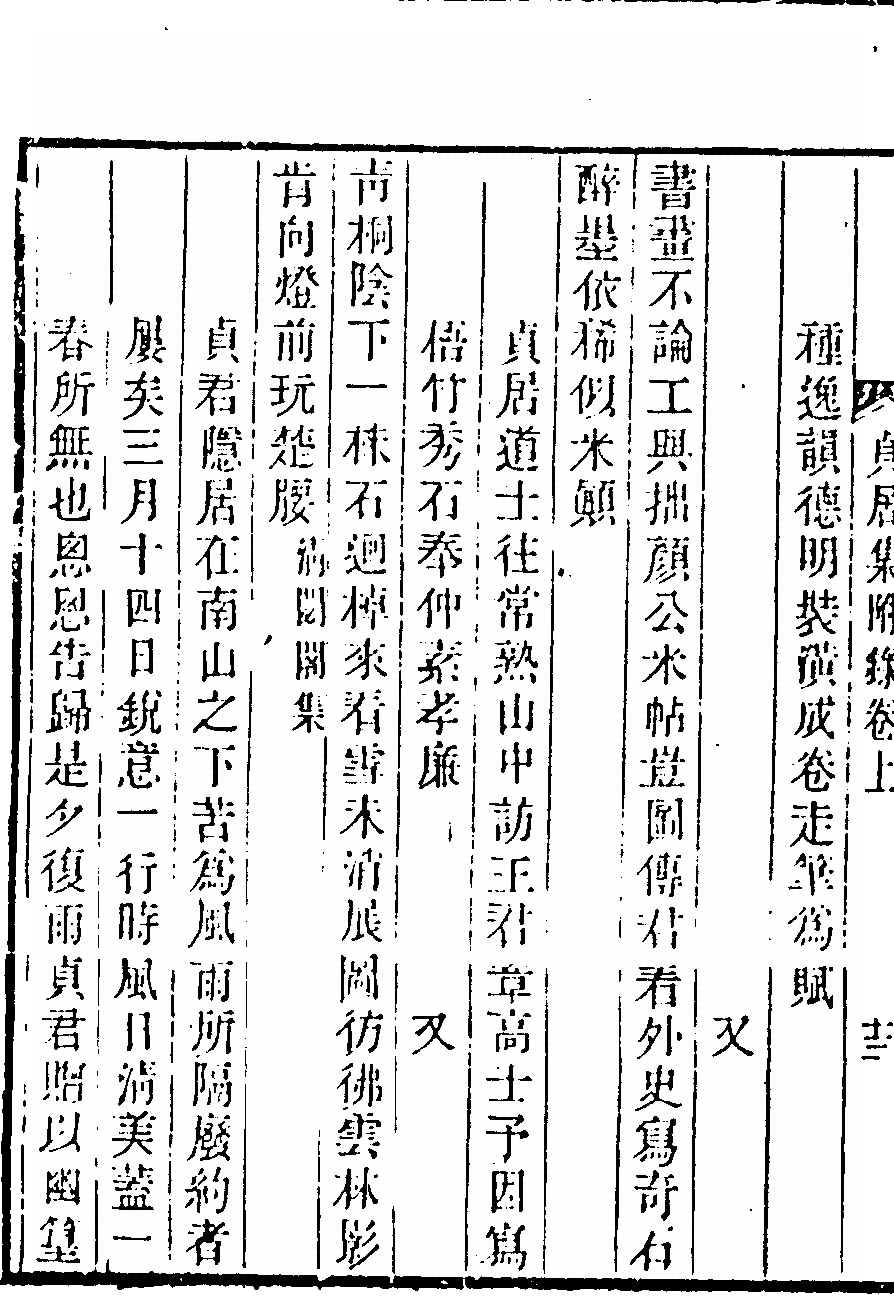 貞居集附錄卷上 十二
種逸韻德明裝潢成卷走筆為賦
又
書畫不論工與拙顏公米帖豈圖傳君看外史寫奇石
醉墨依稀似米顛
貞居道士往常熟山中訪王君章高士予因寫
梧竹秀石奉仲素孝廉
又
青桐陰下一株石迴棹來看雪未消展圖彷彿雲林影
肯向燈前玩楚腰 清閟閣集
貞君隱居在南山之下苦為風雨所隔廢約者
屢矣三月十四日銳意一行時風日清美蓋一
春所無也悤悤告歸是夕復雨貞君貽以幽篁